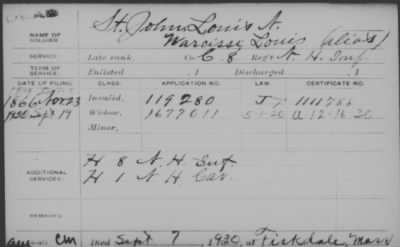 NAME OF SOLDIER: St. John Louis N.
Narcisse, Louis (alias)
SERVICE: Late rank, Co. C. 8 Reg't N. H. Inf
TERM OF SERVICE: Enlisted , 1 Discharged , 1
DATE OF FILING. CLASS. APPLICATION NO. LAW. CERTIFICATE NO.
1866 Nov 23 Invalid, 119280
1920 Sept 19 Widow, 1677011 5-1-20 A 12-16-20
Minor,
ADDITIONAL SERVICES:
H 8 N. H. Inf
H 1 N H Cav.
REMARKS:
Died Sept 7, 1920, at Fiskdale, Mass